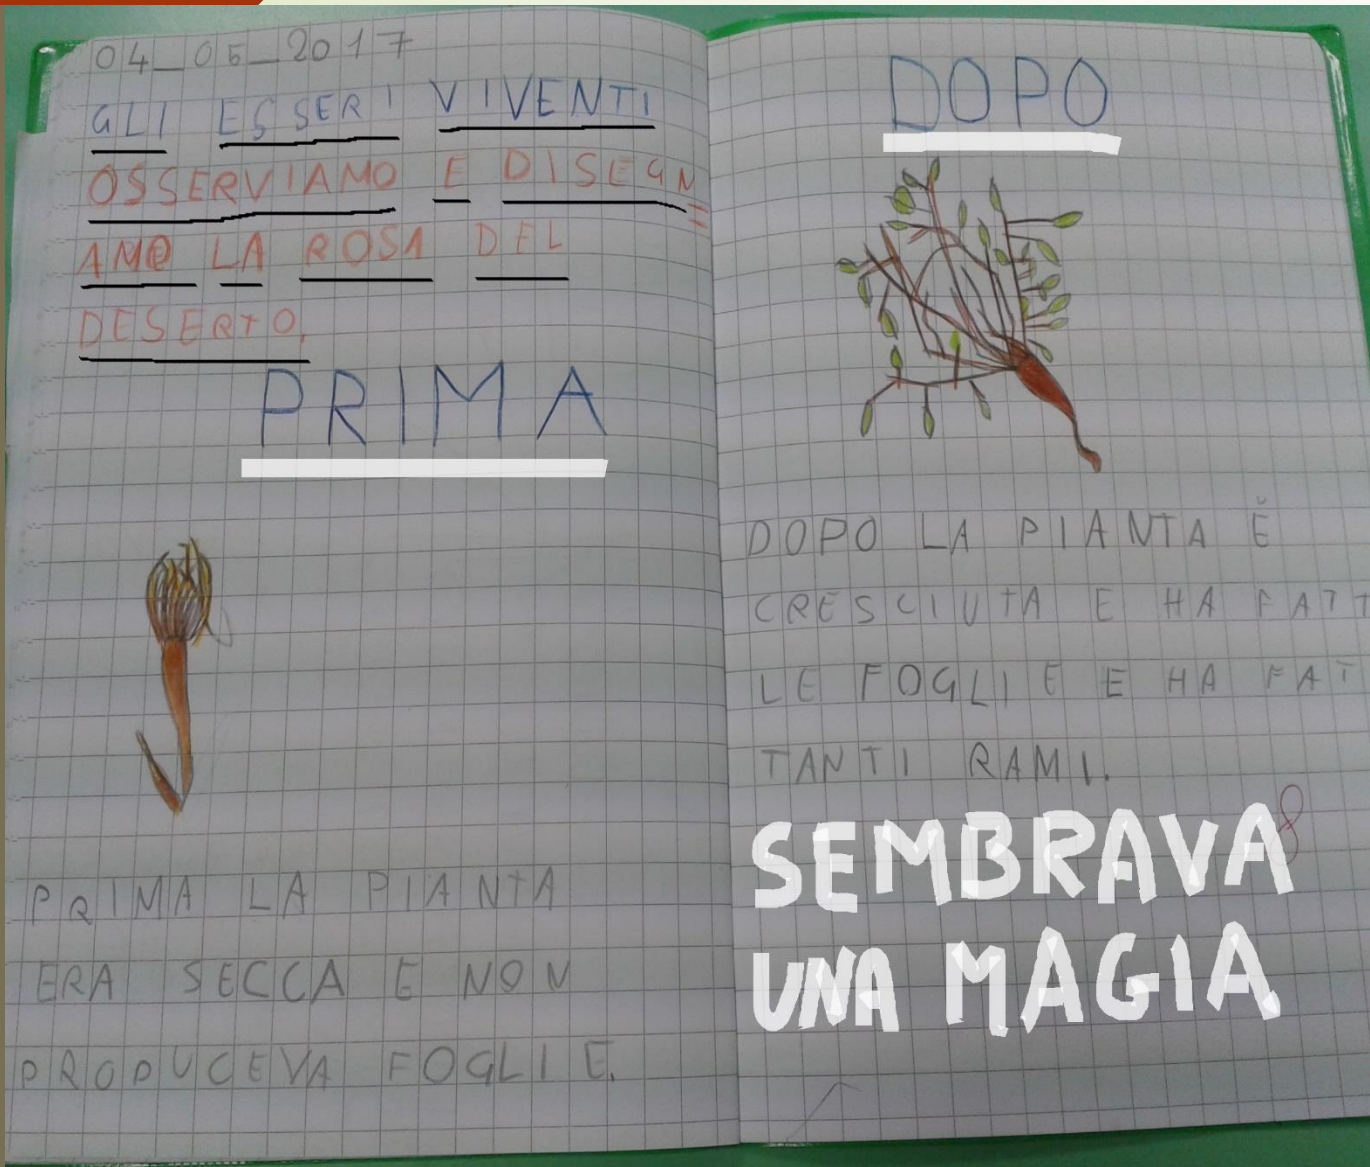 04_05_2017
GLI ESSERI VIVENTI
OSSERVIAMO E DISEGN=
AMO LA ROSA DEL
DESERTO.
PRIMA
PRIMA LA PIANTA
ERA SECCA E NON
PRODUCEVA FOGLIE.
DOPO
DOPO LA PIANTA È
CRESCIUTA E HA FATT
LE FOGLIE E HA FAT
TANTI RAMI.
8
SEMBRAVA
UNA MAGIA.